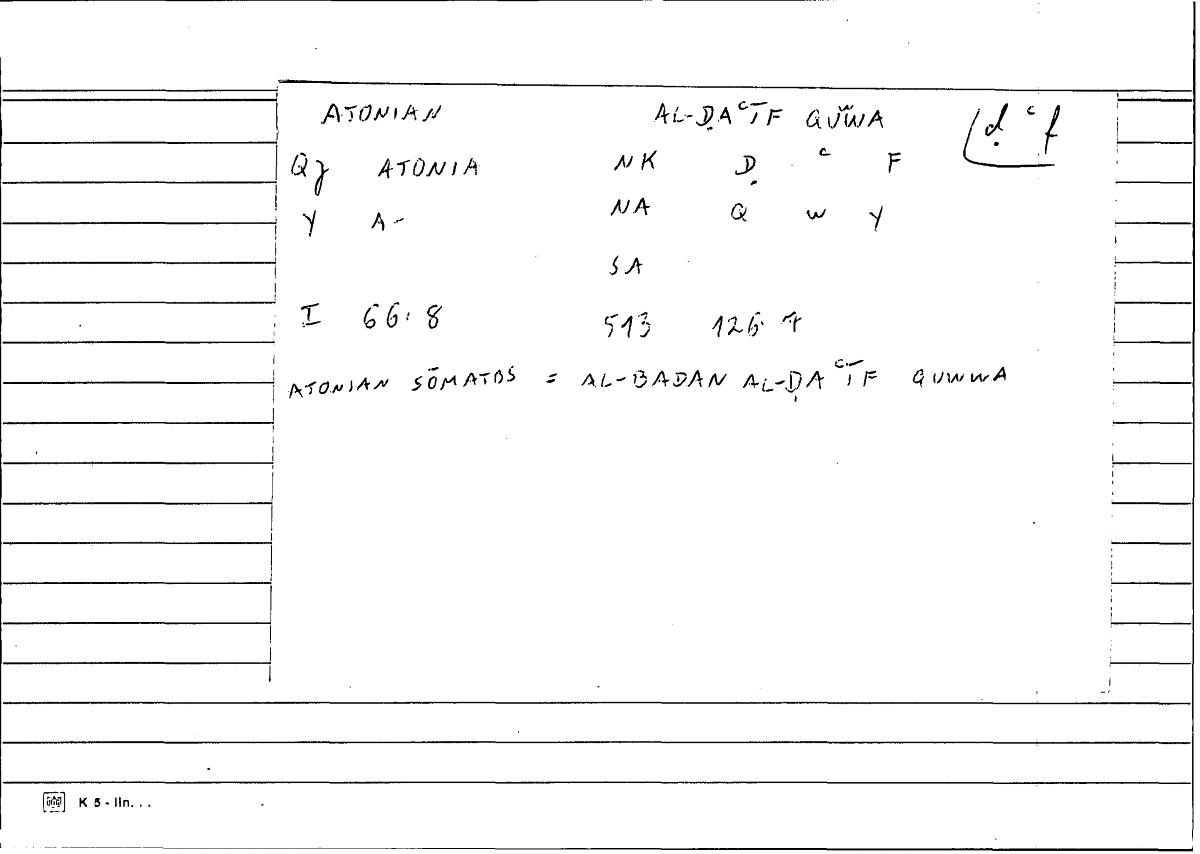 ATONIAN AL-ḌAʿĪF QUWWA ḍʿf
Qz ATONIA NK Ḍ ʿ F
Y A- NA Q W Y
SA
I 66.8 513 126.7
ATONIAN SŌMATOS = AL-BADAN AL-ḌAʿĪF QUWWA
K 5 - lln. . .